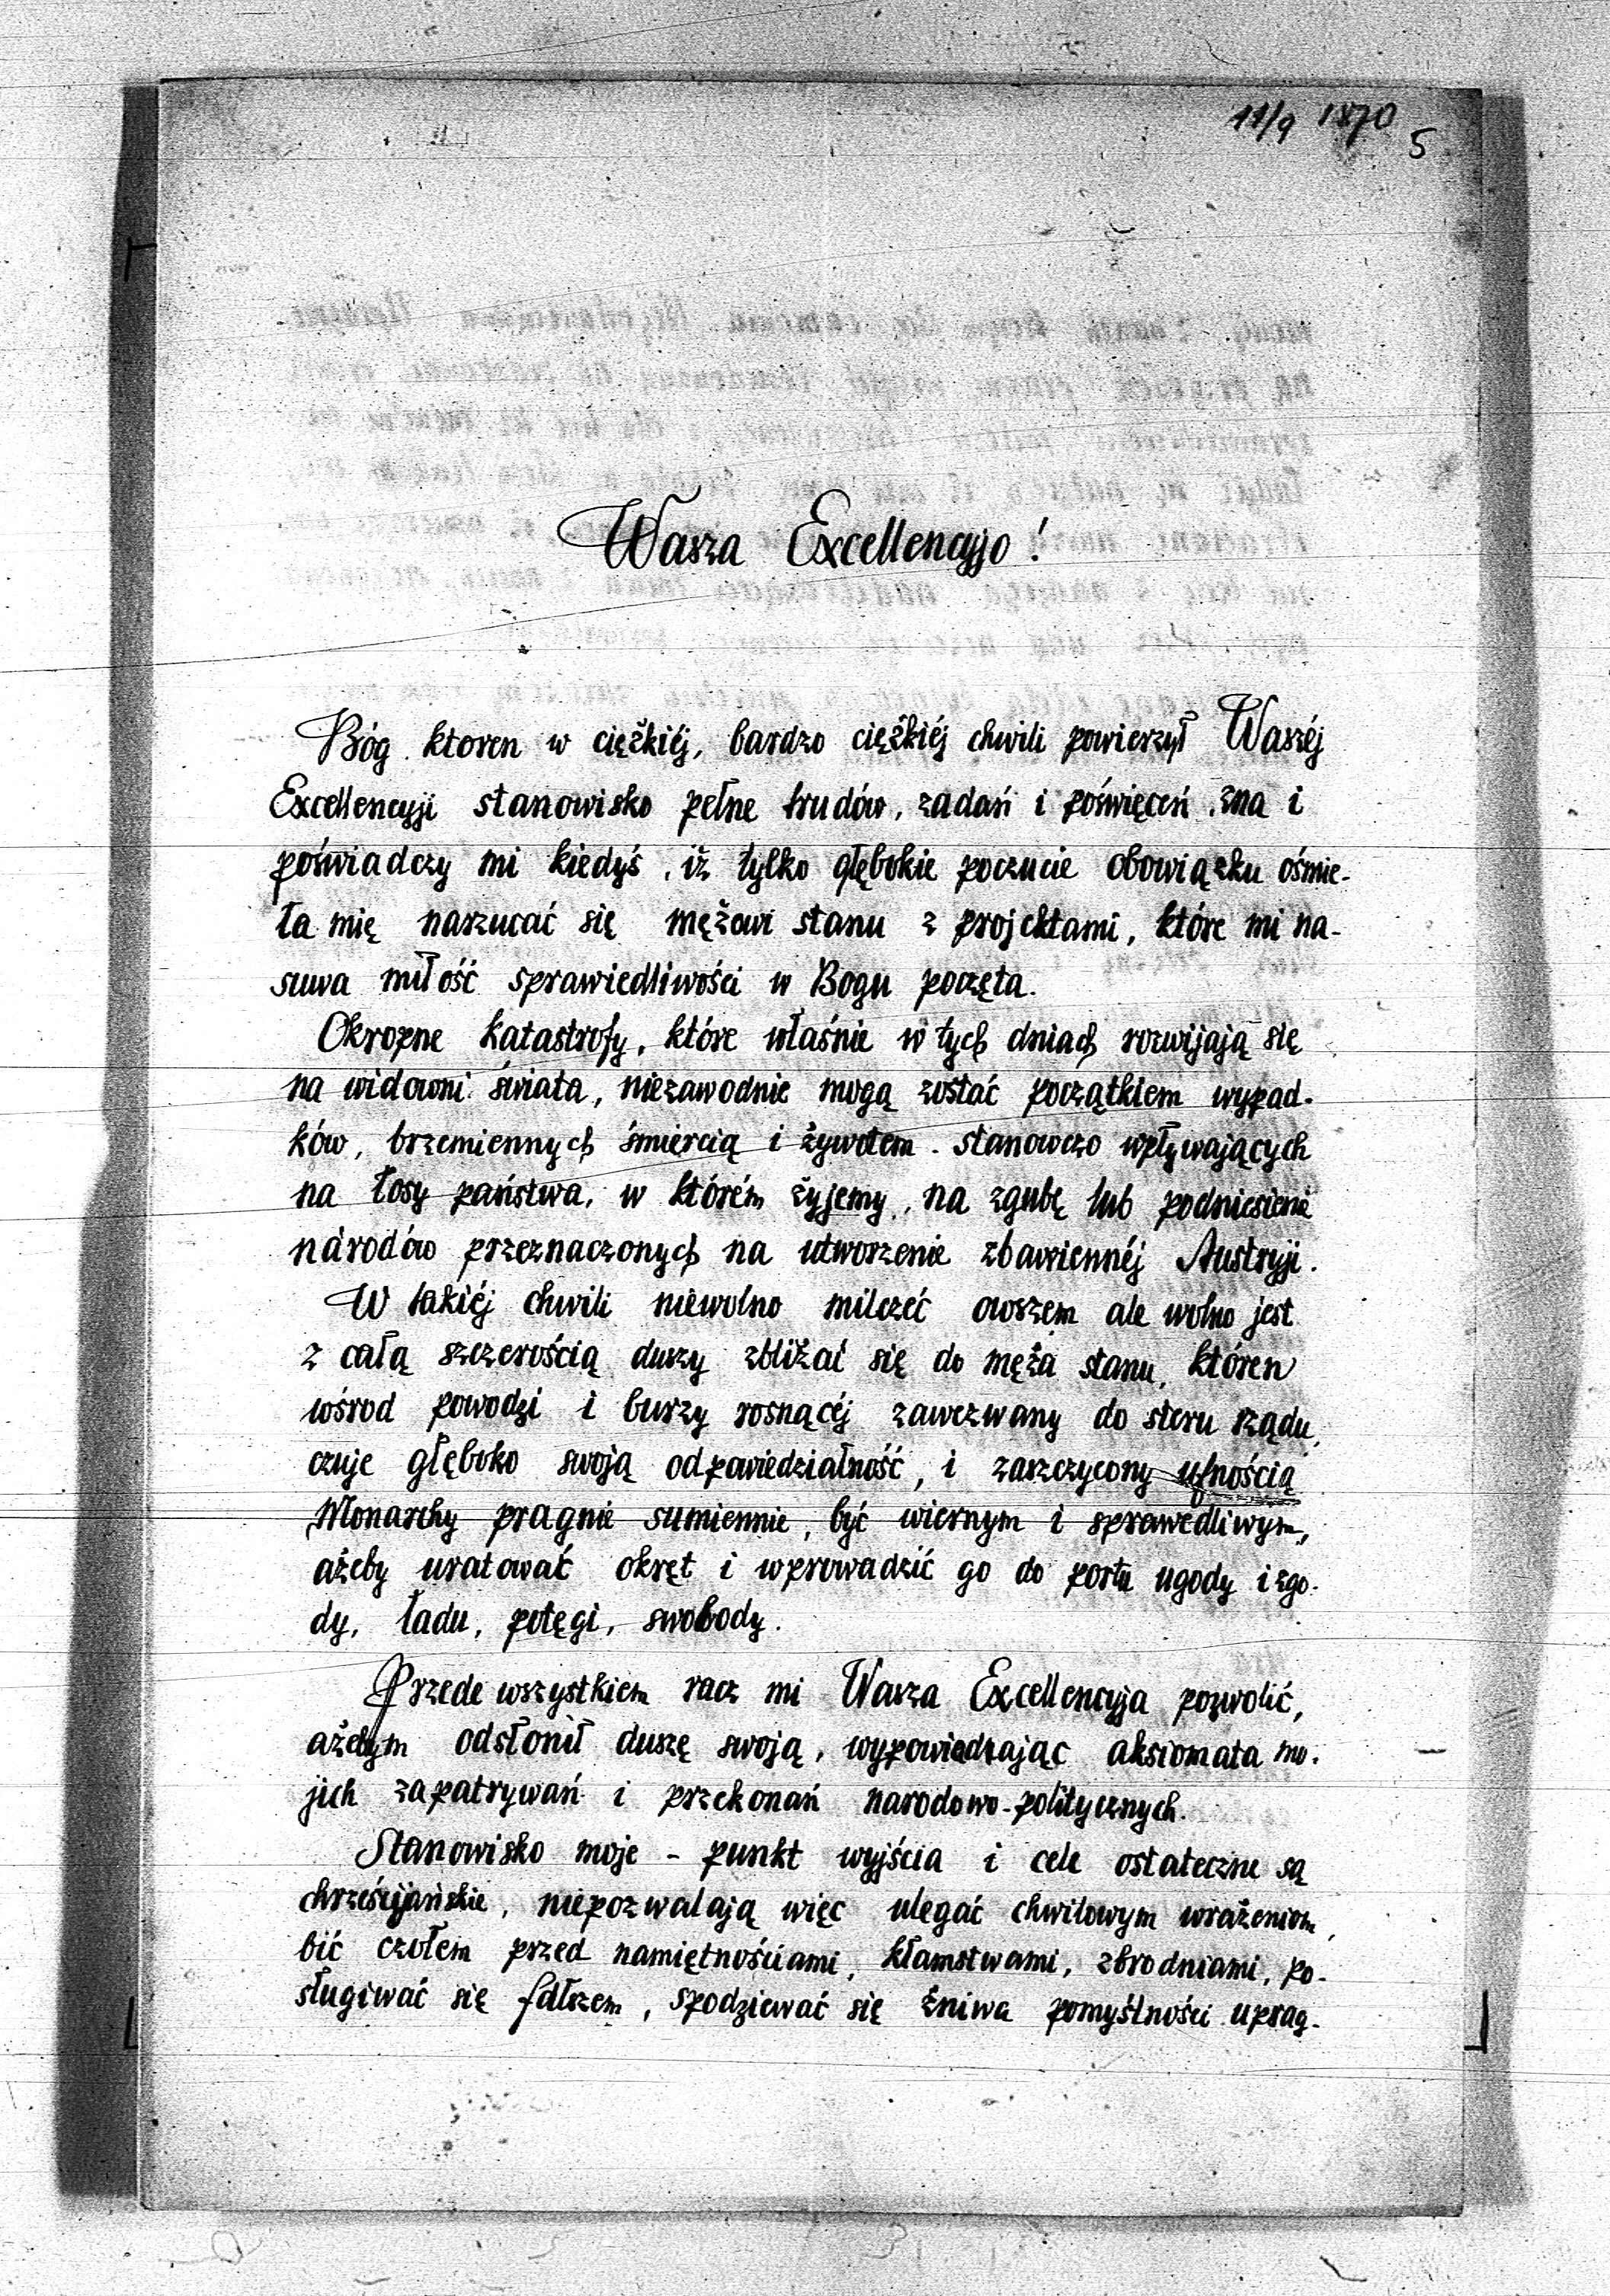 11/9 1870
5
Wasza Excellencyjo!
Bóg, ktoren w ciężkiéj, bardzo ciężkiéj chwili powierzył Waszéj
Excellencyji stanowisko pełne trudów, zadań i poświęceń, zna i
poświadczy mi kiedyś, iż tylko głębokie poczucie obowiązku ośmie-
la mię narzucać się mężowi stanu z projektami, które mi na-
suwa miłość sprawiedliwości w Bogu poczęta.
Okropne katastrofy, które właśnie w tych dniach rozwijają się
na widowni świata, niezawodnie mogą zostać początkiem wypad-
ków, brzemiennych śmiercią i żywotem. stanowczo wpływających
na losy państwa, w którém żyjemy, na zgubę lub podniesienie
narodów przeznaczonych na utworzenie zbawiennéj Austryji.
W takiéj chwili niewolno milczeć owszem ale wolno jest
z całą szczerością duszy zbliżać się do męża stanu, któren
wśrod powodzi i burzy rosnącéj zawezwany do steru rządu,
czuje głęboko swoją odpowiedzialność, i zaszczycony ufnością
Monarchy pragnie sumiennie, być wiernym i sprawedliwym,
ażeby uratować okręt i wprowadzić go do portu ugody i zgo-
dy, ładu, potęgi, swobody.
Przede wszystkiem racz mi Wasza Excellencyja pozwolić,
ażebym odsłonił duszę swoją, wypowiedzając aksiomata mo-
jich zapatrywań i przekonań narodowo-politycznych.
Stanowisko moje - punkt wyjścia i cele ostateczne są
chrześcijańskie, niepozwalają więc ulegać chwilowym wrażeniom,
bić czołem przed namiętnościami, kłamstwami, zbrodniami, po-
sługiwać się fałszem, spodziewać się żniwa pomyślności uprag-